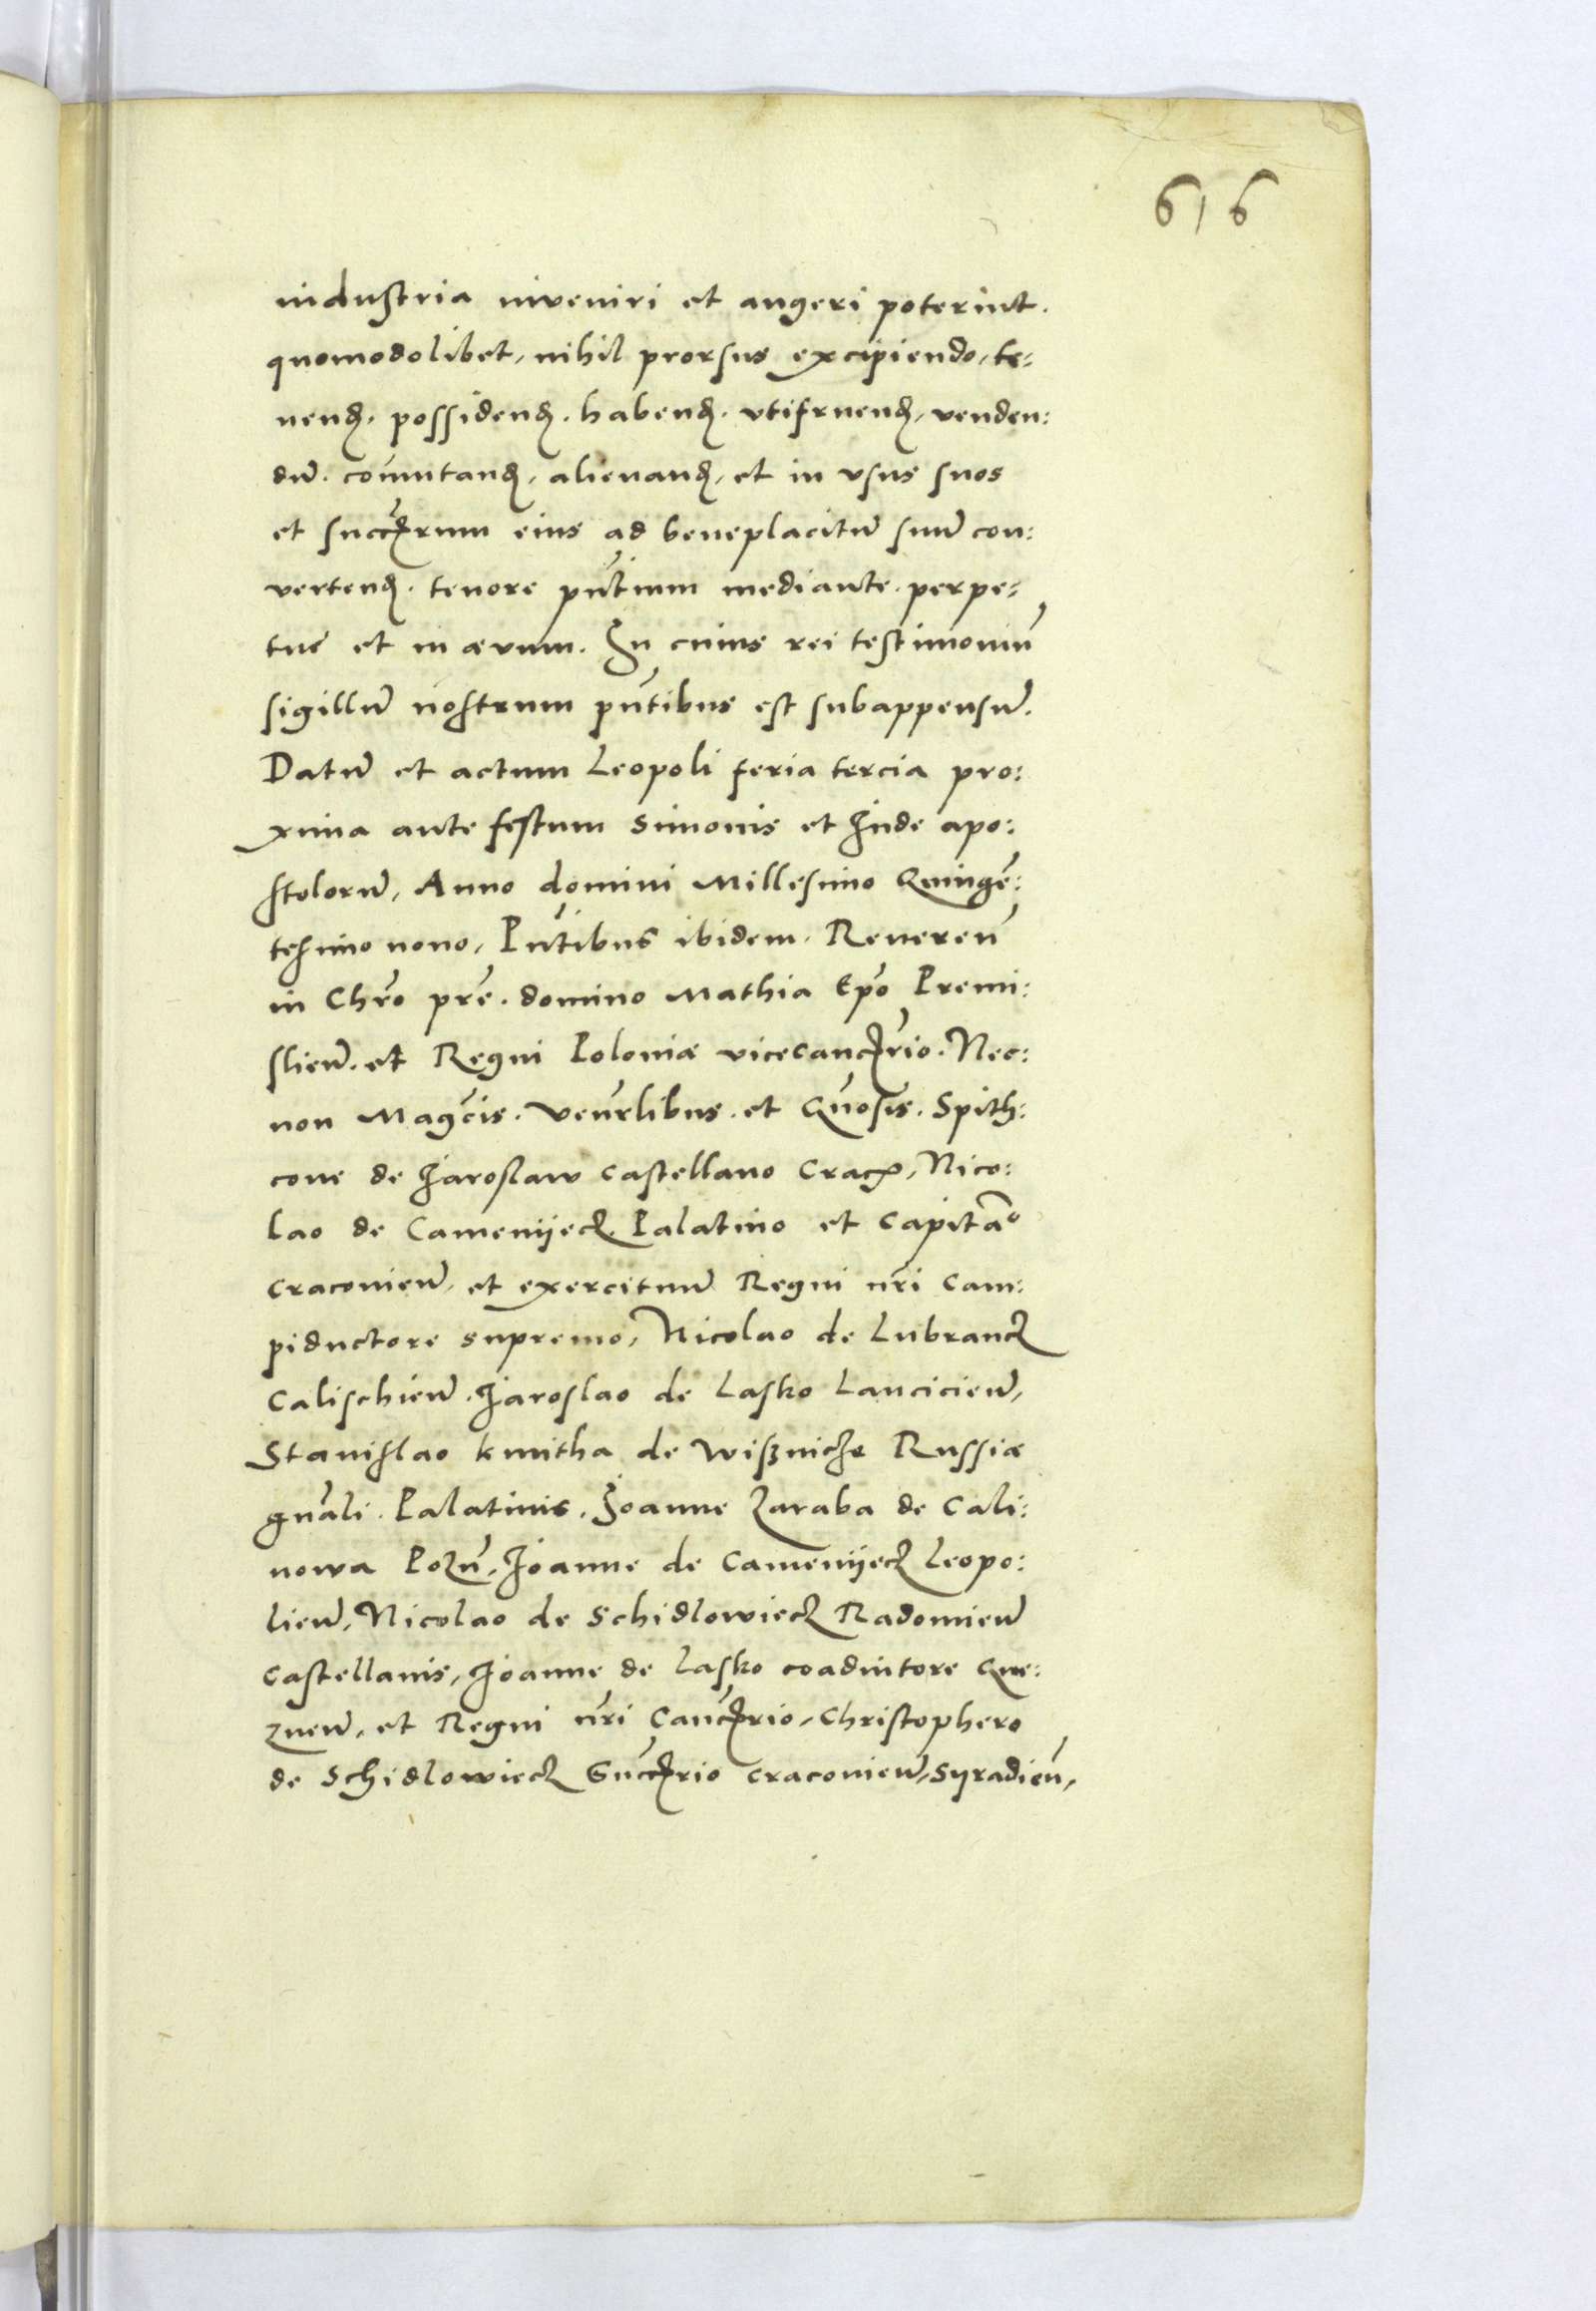 616
industria inveniri et augeri poterint.
quomodolibet, nihil prorsus excipiendo, te:
nend. possidend. habend. utifruend, venden:
dū. cōmutand, alienand, et in usus suos
et succrum eius ad beneplacitū suū con:
vertend. tenore pñtium mediante. perpe:
tue et in ævum. In cuius rei testimoniū
sigillū nostrum pñtibus est subappensū.
Datū et actum Leopoli feria tercia pro:
xima ante festum Simonis et Jude apo:
stolorū, Anno domini Millesimo Quingē:
tesimo nono, Pñtibus ibidem. Reuereñ
in Chrō prē. domino Mathia Epō Premi:
slieñ. et Regni Poloniæ vicecancrio. Nec:
non Magcis. Venrlibus. et Gñosis. Spith:
cone de Jaroslaw Castellano Crac, Nico:
lao de Camenijecz. Palatino et Capitāo
Cracovieñ, et exercituū Regni nri Cam:
piductore supremo, Nicolao de Lubrancz
Calischieñ. Jaroslao de Lasko Lancicieñ,
Stanislao Kmitha de Wisznicze Russiæ
gnali. Palatinis. Joanne Zaraba de Cali:
nowa Pozñ, Joanne de Camenijecz Leopo:
lieñ, Nicolao de Schidlowiecz Radomieñ
Castellanis, Joanne de Lasko coadiutore Gne:
zneñ, et Regni nri Cancrio, Christophero
de Schidlowiecz Succrio Cracovieñ, Syradieñ,